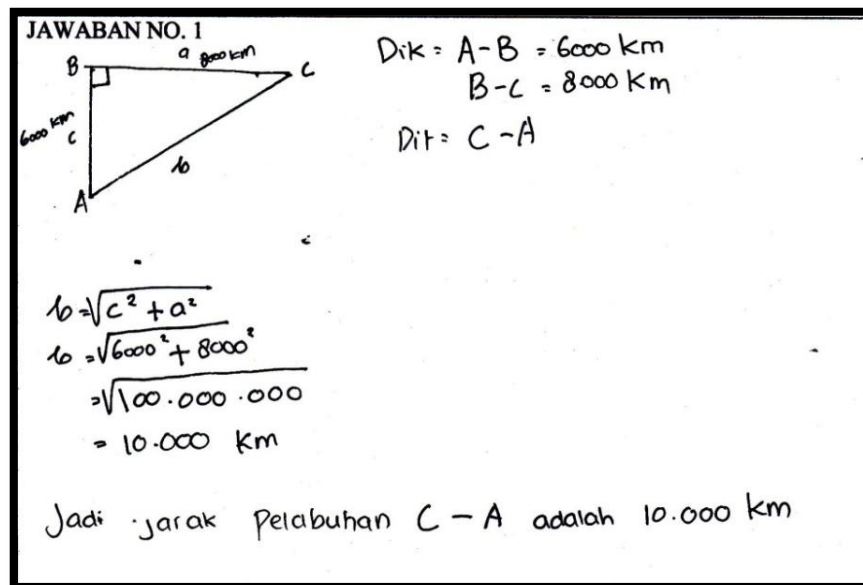 JAWABAN NO. 1
B a 8000 km C
6000 km
c
b
A
Dik = A-B = 6000 km
B-C = 8000 km
Dit = C-A
b=√c² + a²
b =√6000² + 8000²
=√100.000.000
= 10.000 km
Jadi jarak Pelabuhan C - A adalah 10.000 km